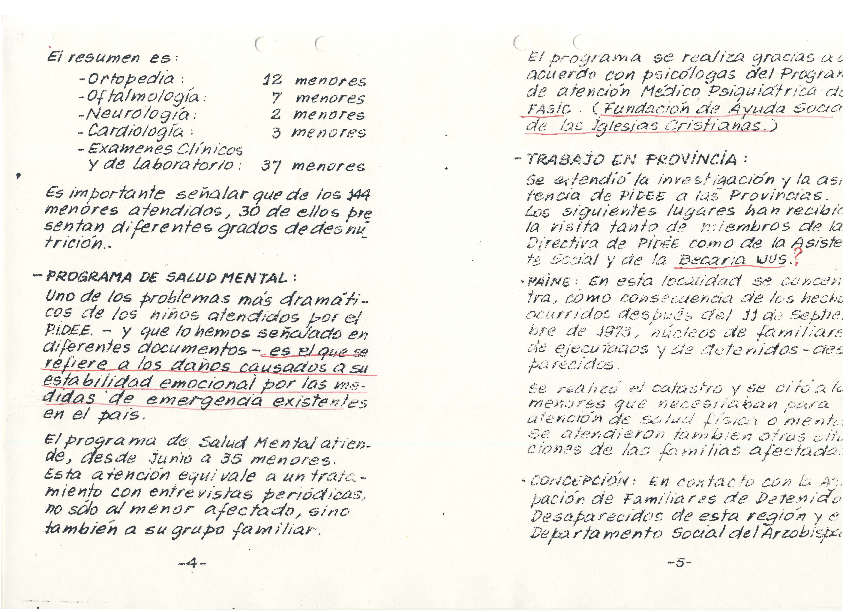 El resumen es:
-Ortopedia: 12 menores
-Oftalmología: 7 menores
-Neurología: 2 menores
-Cardiología: 3 menores
-Examenes Clínicos
y de laboratorio: 37 menores
Es importante señalar que de los 144
menores atendidos, 30 de ellos pre
sentan diferentes grados de desnu
trición.-
-PROGRAMA DE SALUD MENTAL:
Uno de los problemas más dramáti-
cos de los niños atendidos por el
PIDEE. - y que lo hemos señalado en
diferentes documentos - es el que se
refiere a los daños causados a su
estabilidad emocional por las me-
didas de emergencia existentes
en el país.
El programa de Salud Mental atien-
de, desde Junio a 35 menores.
Esta atención equivale a un trata-
miento con entrevistas periódicas,
no sólo al menor afectado, sino
también a su grupo familiar.
-4-
El programa se realiza gracias a
acuerdo con psicólogas del Program
de atención Médico Psiquiátrica de
FASIC. (Fundación de Ayuda Socia
de las Iglesias Cristianas.)
-TRABAJO EN PROVINCIA:
Se extendió la investigación y la asi
tencia de PIDEE a las Provincias.
Los siguientes lugares han recibid
la visita tanto de miembros de la
Directiva de PIDEE como de la Asiste
te Social y de la Becaria WUS.?
·PAINE: En esta localidad se concen
tra, como consecuencia de los hecho
ocurridos después del 11 de Septie
bre de 1973, núcleos de familiare
de ejecutados y de detenidos-des
parecidos.
Se realizó el catastro y se citó a lo
menores que necesitaban para
atención de salud física o menta
se atendieron también otras situ
ciones de las familias afectadas
·CONCEPCIÓN: En contacto con la Agr
pación de Familiares de Detenido
Desaparecidos de esta región y e
Departamento Social del Arzobispa
-5-